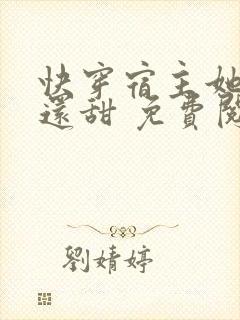 快穿宿主她
還甜 免費閱
劉婧婷